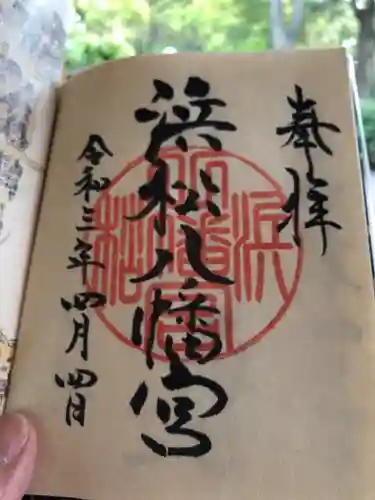 奉拝
浜松八幡宮
令和三年四月四日
浜松八幡宮